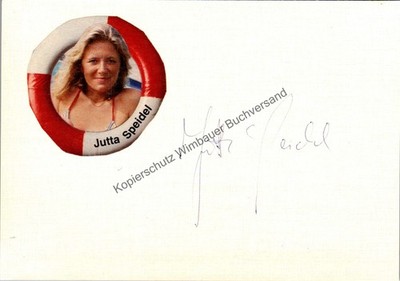 Jutta Speidel
Kopierschutz Wimbauer Buchversand
Jutta Speidel